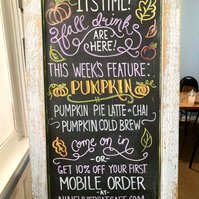 IT'S TIME!
fall drinks
ARE
HERE!
THIS WEEKS FEATURE:
PUMPKIN
PUMPKIN PIE LATTE - CHAI
PUMPKIN COLD BREW
come on in
-OR-
GET 10% OFF YOUR FIRST
MOBILE ORDER
-AT-